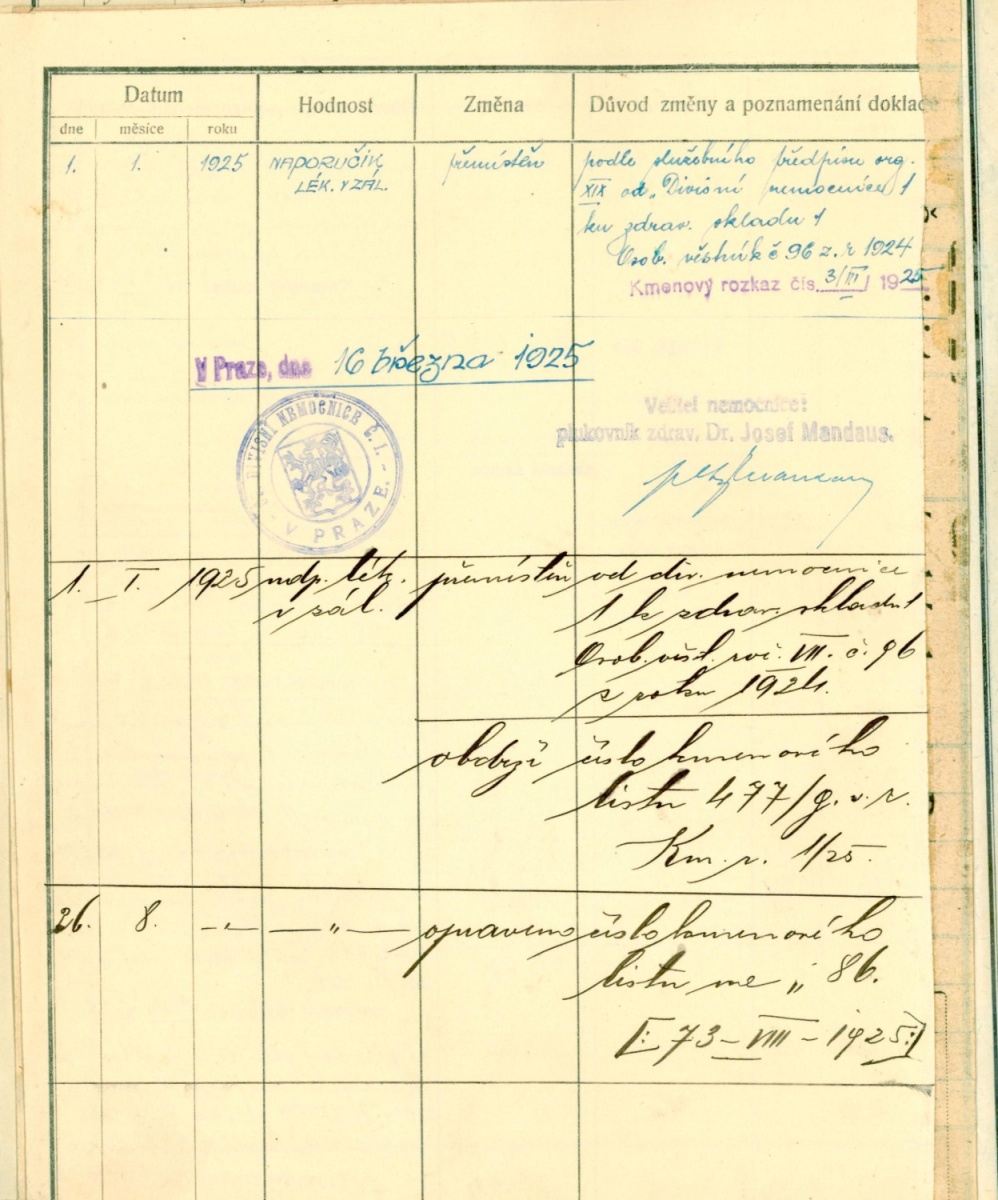 Datum Hodnost Změna Důvod změny a poznamenání dokladů
dne měsíce roku
1. 1. 1925 NADPORUČÍK přemístěn podle služebního předpisu org.
LÉK. V ZÁL. XIX od „Divisní nemocnice 1
ku zdrav. skladu 1
Osob. věstník č 96 z. r 1924
Kmenový rozkaz čís. 3/III 1925
V Praze, dne 16 března 1925
Velitel nemocnice:
plukovník zdrav. Dr. Josef Mandaus.
DIVISNÍ NEMOCNICE Č. 1. V PRAZE.
1. I. 1925 ndp. lék. přemístěn od div. nemocnice
v zál. 1 k zdrav. skladu 1
Osob. věst. roč. VII. č. 96
z roku 1924.
obdrží číslo kmenového
listu 477/g. v. r.
Km. r. 1/25.
26. 8. -„- -„- opraveno číslo kmenového
listu na 86.
[: 73 - VIII - 1925 :]